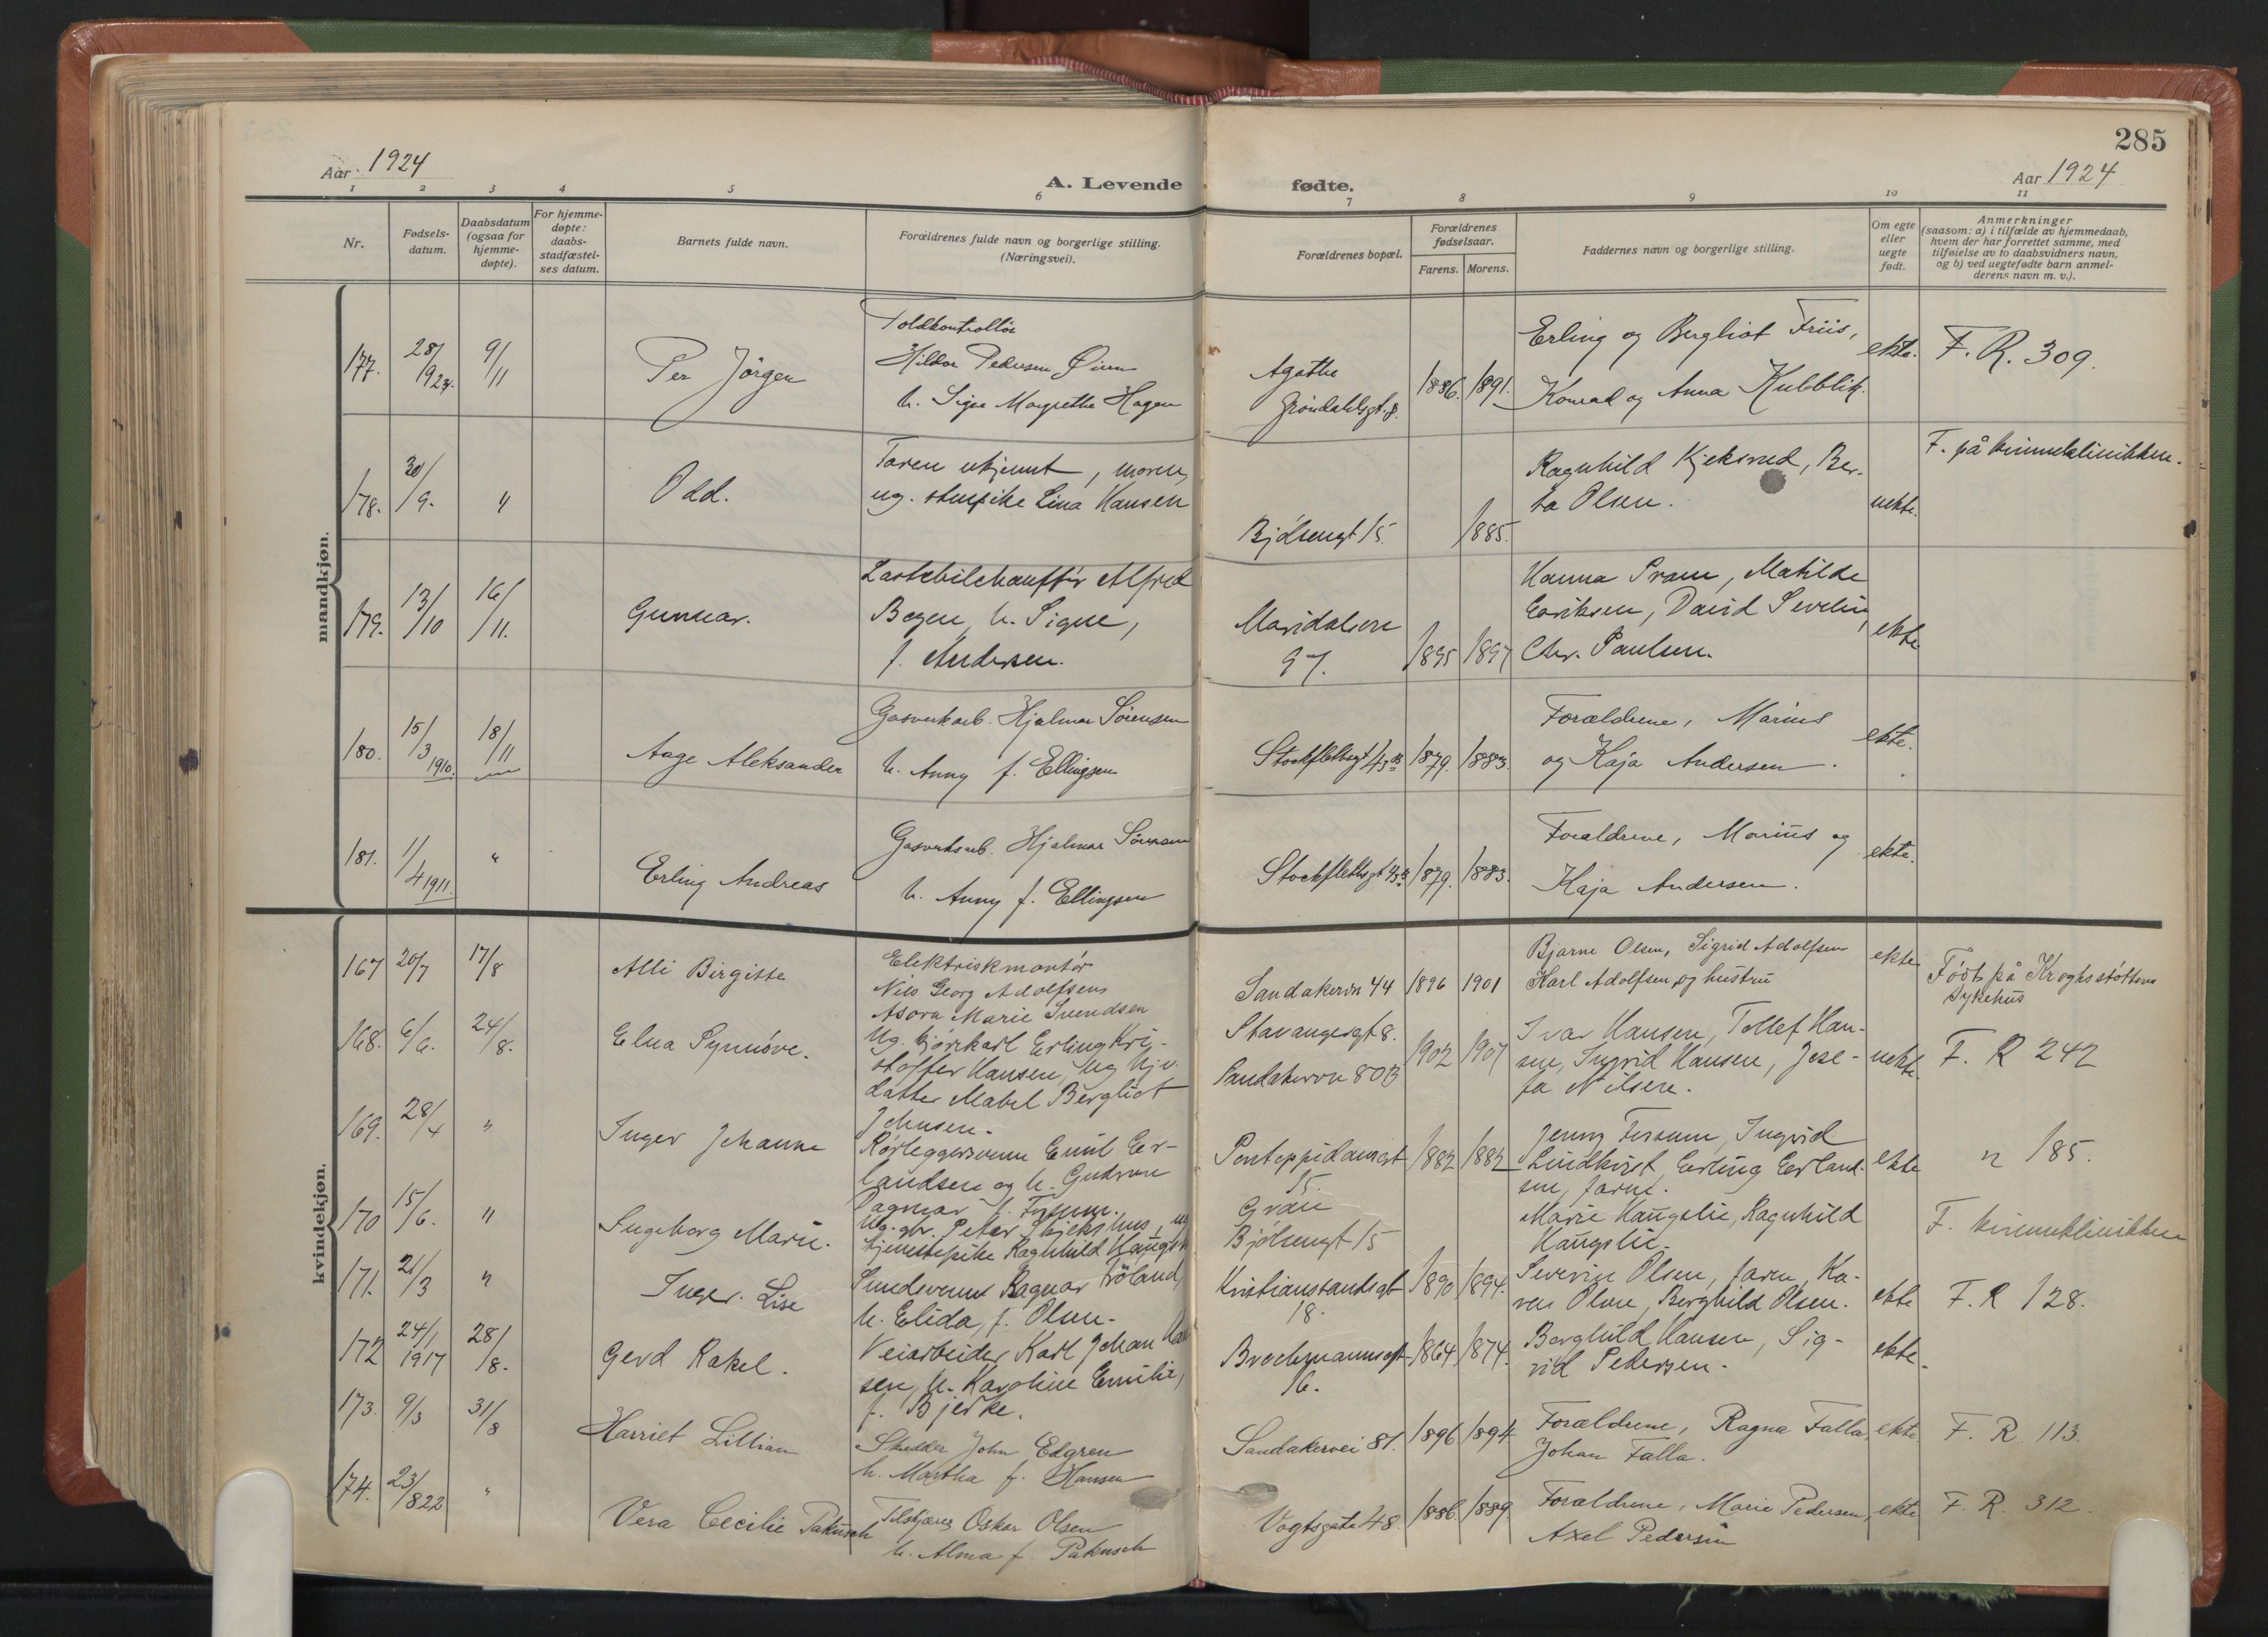 285
Aar 1924
A. Levende fødte.
Aar 1924
1 2 3 4 5 6 7 8 9 10 11
Nr.
Fødsels-
datum.
Daabsdatum
(ogsaa for
hjemme-
døpte).
For hjemme-
døpte:
daabs-
stadfæstel-
ses datum.
Barnets fulde navn.
Forældrenes fulde navn og borgerlige stilling.
(Næringsvei).
Forældrenes bopæl.
Forældrenes
fødselsaar.
Farens. Morens.
Faddernes navn og borgerlige stilling.
Om egte
eller
uegte
født.
Anmerkninger
(saasom: a) i tilfælde av hjemmedaab,
hvem der har forrettet samme, med
tilføielse av to daabsvidners navn,
og b) ved uegtefødte barn anmel-
derens navn m. v.).
mandkjøn.
177. 28/9 24. 9/11 Per Jörgen
Toldkontrollør
Pedersen
h. Signe Margrethe Hagen
Agathe
Grøndahlsgt. 8.
1886. 1891.
Erling og Bergliot Friis,
Konrad og Anna Kubblik.
ekte. F. R. 309.
178. 30/9. " Odd.
Faren ukjennt, moren,
ug. stuepike Lina Hansen
Bjølsengt 15.
1885.
Ragnhild Kjeksrud, Ber-
ta Olsen.
uekte. F. på kvinneklinikken.
179. 13/10 16/11. Gunnar.
Lastebilchauffør Alfred
h. Signe,
f. Andersen.
Maridalsvn
97.
1895 1897
Hanna Pram, Matilde
Eriksen, David Severin,
Chr. Paulsen.
ekte
180. 15/3 1910. 18/11 Aage Aleksander
Gasverksarb. Hjalmar Sörensen
h. Anny f. Ellingsen
Stockflethsgt
1879. 1883.
Forældrene, Marius
og Kaja Andersen.
ekte.
181. 1/4 1911. " Erling Andreas
Gasverksarb. Hjalmar Sörensen
h. Anny f. Ellingsen
Stockflethsgt
1879. 1883.
Forældrene, Marius og
Kaja Andersen.
ekte.
kvindekjøn.
167 20/7 17/8 Alli Birgitte
Elektriskmontör
Nils Georg Adolfsens
Asora Marie Svendsen
Sandakervn 44 1896 1901
Bjarne Olsen, Sigrid Adolfsen
Karl Adolfsen og hustru
ekte Född på Kroghsstøttens
sykehus
168. 6/6. 24/8. Elna Synnöve.
Ug. Erling Kri-
stoffer Hansen, ug. hjv.
datter Mabel Bergliot
Johnsen.
Stavangergt 8.
Sandakervn 80B
1902 1907
Ivar Hansen, Tollef Han-
sen, Ingrid Hansen, Jose-
fa Nilsen.
uekte. F. R 242
169. 28/4 " Inger Johanne
Rørleggersvenn Emil Er-
landsen og h. Gudrun
Dagmar f. Fossum.
Pontoppidansgt
15.
1882 1882
Jenny Fossum, Ingrid
Lindkvist, Erling Erland-
sen, faren.
ekte " 185.
170 15/6. " Ingeborg Marie.
Ug. gbr. Peter
tjenestepike Ragnhild
Gran
Bjølsengt 15
Marie Haugslie, Ragnhild
Haugslie.
F. kvinneklinikken
171. 21/3 " Inger Lise
Smedsvenn Ragnar Fröland,
h. Elida, f. Olsen.
Kristianssandsgt
18.
1890 1894.
Severin Olsen, faren, Ka-
ren Olsen, Berghild Olsen.
ekte F. R 128.
172 24/1 1917 28/8. Gerd Rakel.
Veiarbeider Karl Johan Han
sen, h. Karoline Emilie,
f. Bjerke.
Brochmannsgt
16.
1864 1874.
Borghild Hansen, Sig-
rid Pedersen.
ekte.
173. 9/3 31/8 Harriet Lillian
John Edgren
h. Martha f. Hansen
Sandakervei 81. 1896 1894
Forældrene, Ragna Falla,
Johan Falla.
ekte F. R. 113.
174. 23/8 22 " Vera Cecilie Pakusch
Oskar Olsen
h. Alma f. Pakusch
Vogtsgate 48. 1886 1889
Forældrene, Marie Pedersen,
Axel Pedersen
ekte F. R. 312.